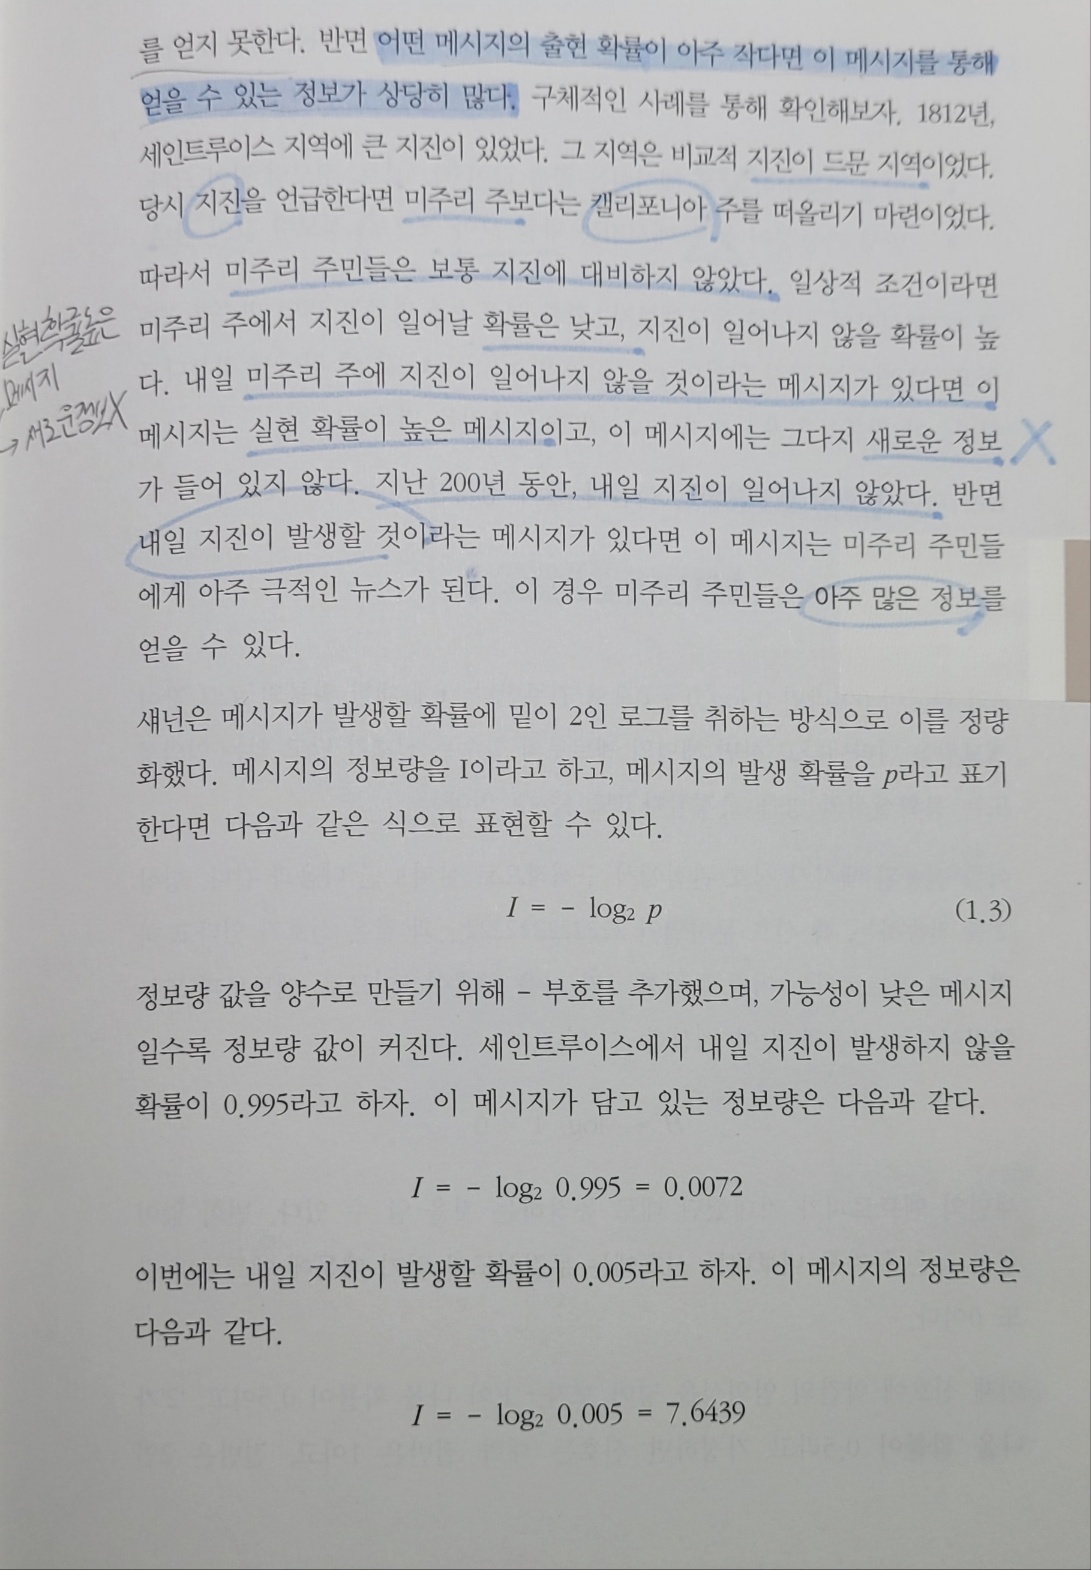 를 얻지 못한다. 반면 어떤 메시지의 출현 확률이 아주 작다면 이 메시지를 통해
얻을 수 있는 정보가 상당히 많다. 구체적인 사례를 통해 확인해보자. 1812년,
세인트루이스 지역에 큰 지진이 있었다. 그 지역은 비교적 지진이 드문 지역이었다.
당시 지진을 언급한다면 미주리 주보다는 캘리포니아 주를 떠올리기 마련이었다.
따라서 미주리 주민들은 보통 지진에 대비하지 않았다. 일상적 조건이라면
미주리 주에서 지진이 일어날 확률은 낮고, 지진이 일어나지 않을 확률이 높
다. 내일 미주리 주에 지진이 일어나지 않을 것이라는 메시지가 있다면 이
메시지는 실현 확률이 높은 메시지이고, 이 메시지에는 그다지 새로운 정보
가 들어 있지 않다. 지난 200년 동안, 내일 지진이 일어나지 않았다. 반면
내일 지진이 발생할 것이라는 메시지가 있다면 이 메시지는 미주리 주민들
에게 아주 극적인 뉴스가 된다. 이 경우 미주리 주민들은 아주 많은 정보를
얻을 수 있다.
실현확률높은
메시지
→ 새로운정보X
X
섀넌은 메시지가 발생할 확률에 밑이 2인 로그를 취하는 방식으로 이를 정량
화했다. 메시지의 정보량을 I이라고 하고, 메시지의 발생 확률을 p라고 표기
한다면 다음과 같은 식으로 표현할 수 있다.
I = - log₂ p (1.3)
정보량 값을 양수로 만들기 위해 - 부호를 추가했으며, 가능성이 낮은 메시지
일수록 정보량 값이 커진다. 세인트루이스에서 내일 지진이 발생하지 않을
확률이 0.995라고 하자. 이 메시지가 담고 있는 정보량은 다음과 같다.
I = - log₂ 0.995 = 0.0072
이번에는 내일 지진이 발생할 확률이 0.005라고 하자. 이 메시지의 정보량은
다음과 같다.
I = - log₂ 0.005 = 7.6439